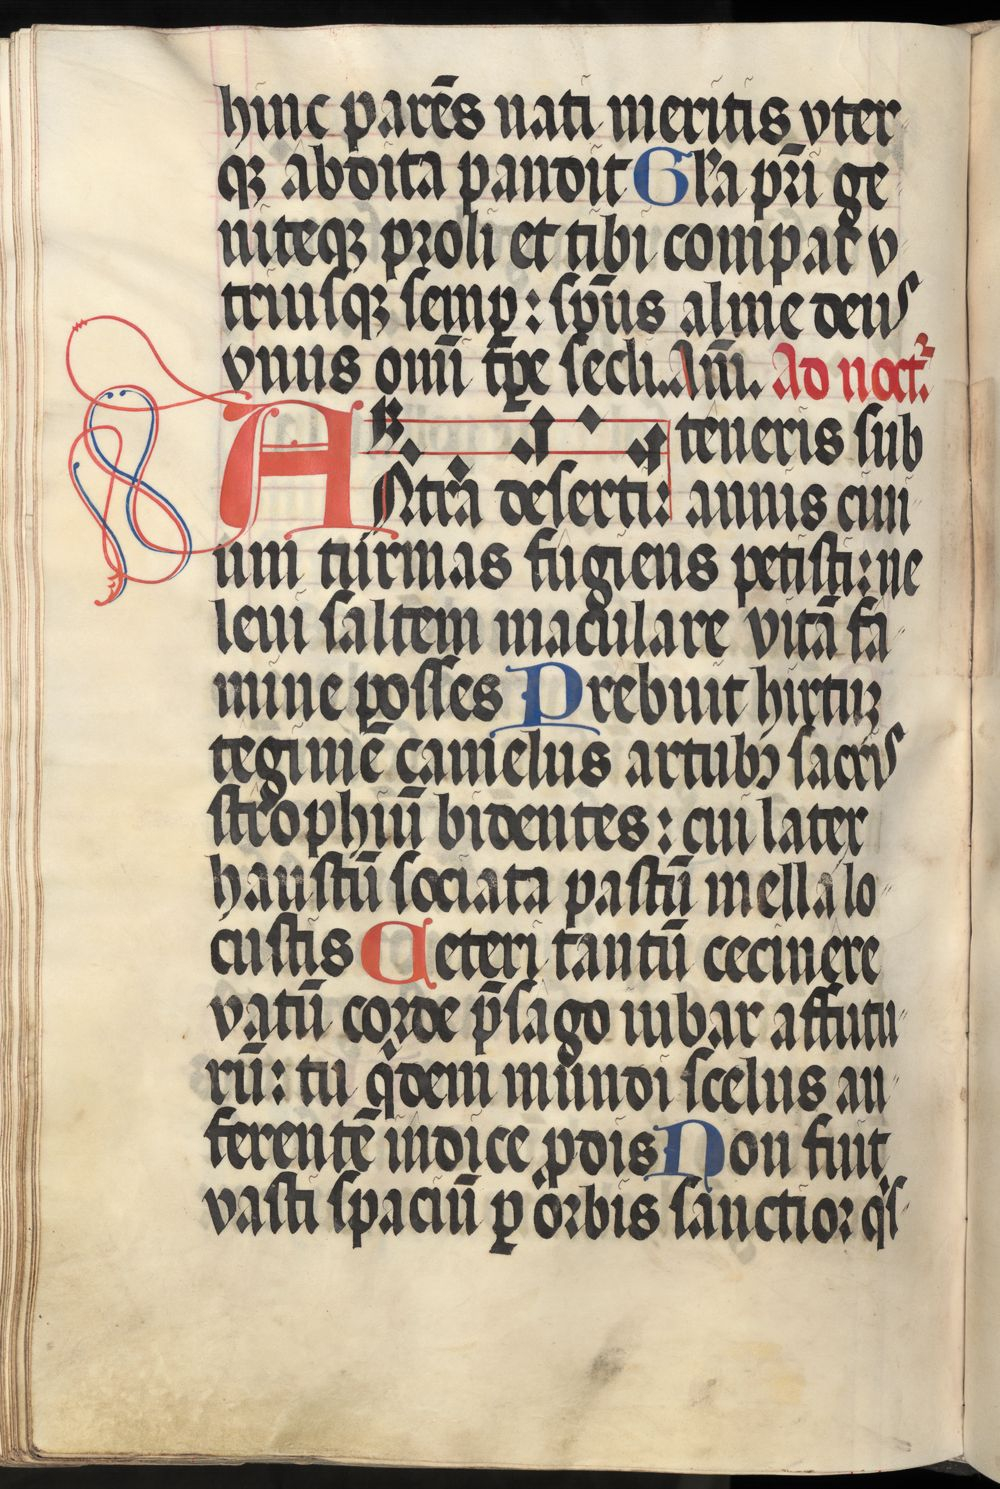 hinc parēs nati meritis vter
qꝫ abdita pandit Gl'a pr̄i ge
niteqꝫ proli et tibi compar v
triusqꝫ semꝑ : sp̄us alme deus
vnus om̄i tꝑe secli. Am̄. Ad noct.
teneris sub
Antra deserti : annis ciui
um turmas fugiens petisti : ne
leui saltem maculare vitā fa
mine posses Prebuit hirtuꝫ
tegimē camelus artubꝫ sacris
strophiū bidentes : cui latex
haustū sociata pastū mella lo
custis Ceteri tantū cecinere
vatū corde p̄sago iubar affutu
rū : tu qͥdem mundi scelus au
ferentē indice ꝓdis Non fuit
vasti spaciū ꝑ orbis sanctior qͥs